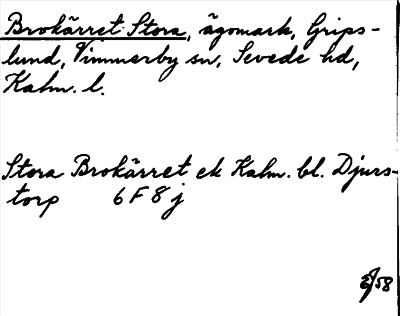 Brokärret Stora, ägomark, Grips-
lund, Vimmerby sn, Sevede hd,
Kalm. l.
Stora Brokärret ek Kalm. bl. Djurs-
torp 6 F 8 j
58